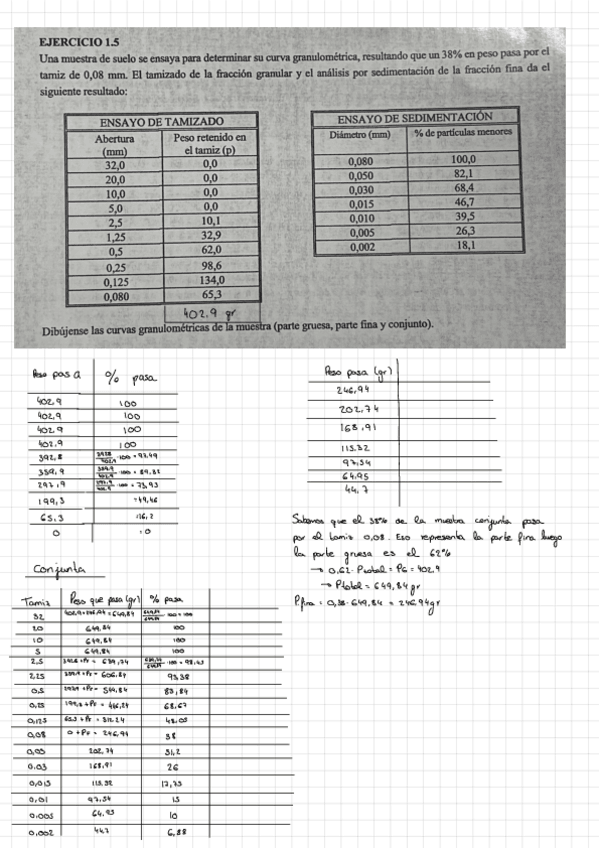 EJERCICIO 1.5
Una muestra de suelo se ensaya para determinar su curva granulométrica, resultando que un 38% en peso pasa por el
tamiz de 0,08 mm. El tamizado de la fracción granular y el análisis por sedimentación de la fracción fina da el
siguiente resultado:
ENSAYO DE TAMIZADO
Abertura (mm) Peso retenido en el tamiz (p)
32,0 0,0
20,0 0,0
10,0 0,0
5,0 0,0
2,5 10,1
1,25 32,9
0,5 62,0
0,25 98,6
0,125 134,0
0,080 65,3
402.9 gr
ENSAYO DE SEDIMENTACIÓN
Diámetro (mm) % de partículas menores
0,080 100,0
0,050 82,1
0,030 68,4
0,015 46,7
0,010 39,5
0,005 26,3
0,002 18,1
Dibújense las curvas granulométricas de la muestra (parte gruesa, parte fina y conjunto).
Peso pasa % pasa
402,9 100
402,9 100
402.9 100
402.9 100
392,8 · 100 = 97,49
359,9 · 100 = 89,32
297,9 · 100 = 73,93
199,3 = 49,46
65,3 16,2
0 0
Peso pasa (gr)
246,94
202,74
168,91
115.32
97,54
64.95
44.7
Sabemos que el 38% de la muestra conjunta pasa
por el tamiz 0,08. Eso representa la parte fina luego
la parte gruesa es el 62%
→ 0,62 · Ptotal = PG = 402.9
→ Ptotal = 649,84 gr
Pfina = 0,38 · 649,84 = 246,94 gr
Conjunta
Tamiz Peso que pasa (gr) % pasa
32 402,9+246,94 = 649,84 · 100 = 100
20 649,84 100
10 649,84 100
5 649,84 100
2,5 392,8 + PF = 639,74 · 100 = 98,45
2,25 359,9 + PF = 606,84 93,38
0,5 297,9 + PF = 544,84 83,84
0,25 199,3 + PF = 446,24 68,67
0,125 65,3 + PF = 312,24 48,05
0,08 0 + PF = 246,94 38
0,05 202,74 31,2
0,03 168,91 26
0,015 115,32 17,75
0,01 97,54 15
0.005 64,95 10
0,002 44,7 6,88